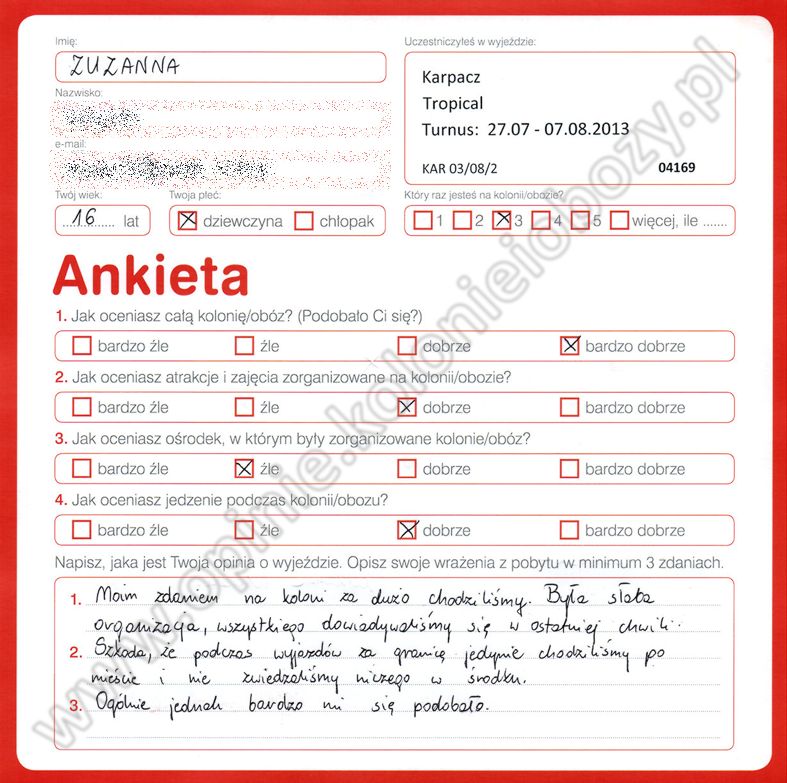 Imię:
ZUZANNA
Nazwisko:
e-mail:
Twój wiek:
16 lat
Twoja płeć:
dziewczyna chłopak
Uczestniczyłeś w wyjeździe:
Karpacz
Tropical
Turnus: 27.07 - 07.08.2013
KAR 03/08/2 04169
Który raz jesteś na kolonii/obozie?
1 2 3 4 5 więcej, ile .......
Ankieta
1. Jak oceniasz całą kolonię/obóz? (Podobało Ci się?)
bardzo źle źle dobrze bardzo dobrze
2. Jak oceniasz atrakcje i zajęcia zorganizowane na kolonii/obozie?
bardzo źle źle dobrze bardzo dobrze
3. Jak oceniasz ośrodek, w którym były zorganizowane kolonie/obóz?
bardzo źle źle dobrze bardzo dobrze
4. Jak oceniasz jedzenie podczas kolonii/obozu?
bardzo źle źle dobrze bardzo dobrze
Napisz, jaka jest Twoja opinia o wyjeździe. Opisz swoje wrażenia z pobytu w minimum 3 zdaniach.
1. Moim zdaniem na koloni za dużo chodziliśmy. Była słaba
organizacja, wszystkiego dowiadywaliśmy się w ostatniej chwili.
2. Szkoda, że podczas wyjazdów za granicę jedynie chodziliśmy po
mieście i nie zwiedzaliśmy niczego w środku.
3. Ogólnie jednak bardzo mi się podobało.
www.opinie.kolonieiobozy.pl